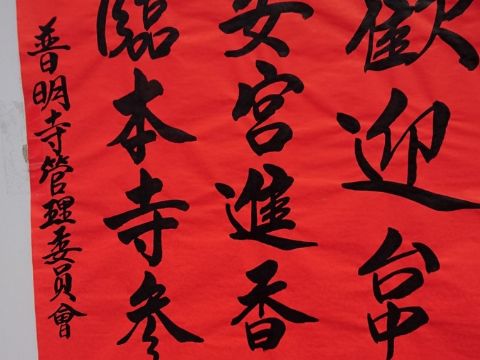 歡迎台中
安宮進香
臨本寺參
普明寺管理委員會